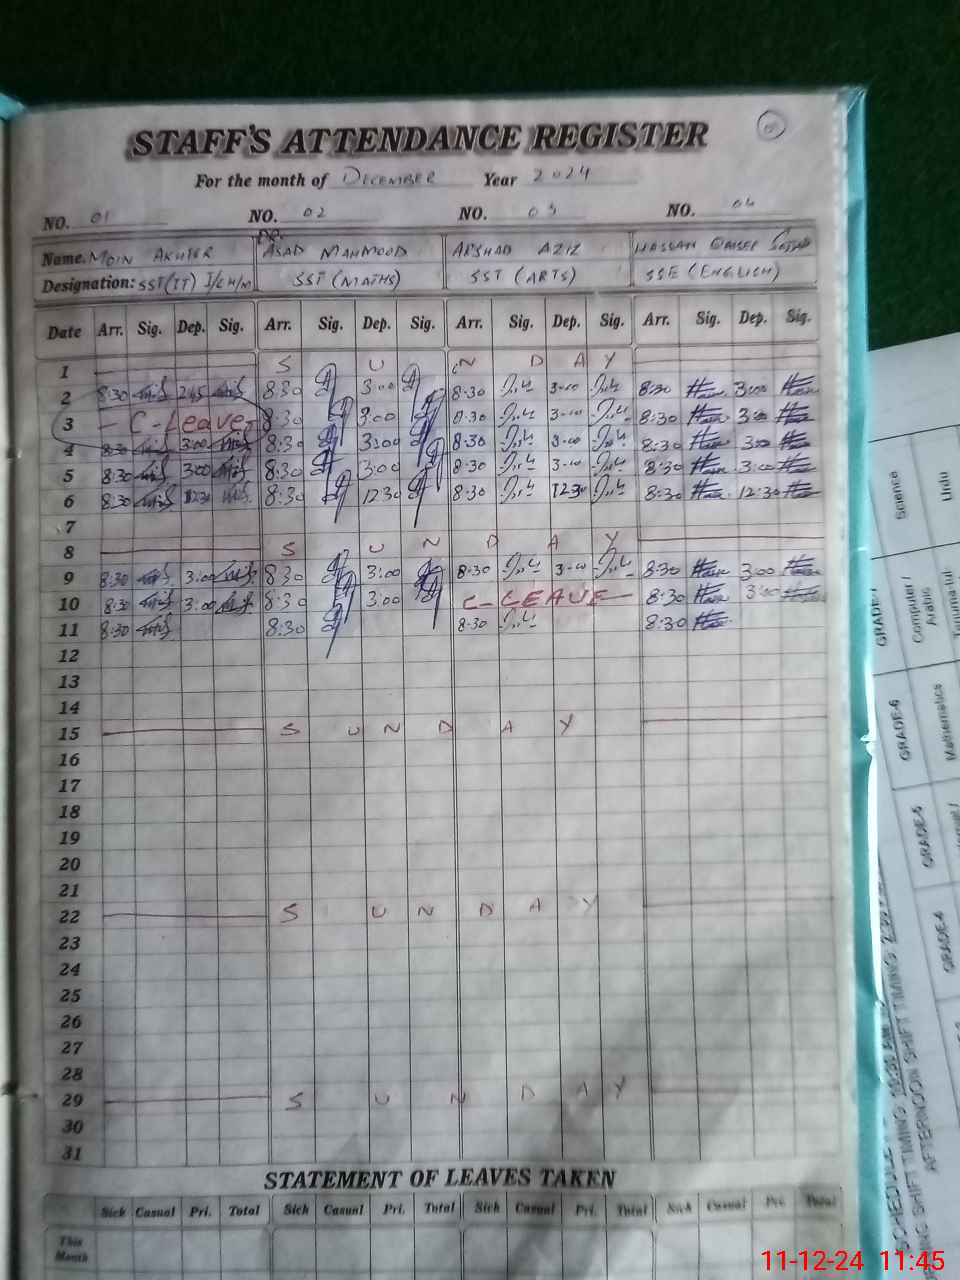 STAFF'S ATTENDANCE REGISTER
For the month of DECEMBER Year 2024
NO. 01 NO. 02 NO. 03 NO. 04
Name. MOIN AKHTER DR. ASAD MAHMOOD ARSHAD AZIZ HASSAN
Designation: SST(IT) I/CH/M SST (MATHS) SST (ARTS) SSE (ENGLISH)
Date Arr. Sig. Dep. Sig. Arr. Sig. Dep. Sig. Arr. Sig. Dep. Sig. Arr. Sig. Dep. Sig.
1 S U N D A Y
2 8:30 2:45 8:30 3:00 8:30 3:00 8:30 3:00
3 C-Leave 8:30 3:00 8:30 3:00 8:30 3:00
4 8:30 3:00 8:30 3:00 8:30 3:00 8:30 3:00
5 8:30 3:00 8:30 3:00 8:30 3:00 8:30 3:00
6 8:30 12:30 8:30 12:30 8:30 12:30 8:30 12:30
7
8 S U N D A Y
9 8:30 3:00 8:30 3:00 8:30 3:00 8:30 3:00
10 8:30 3:00 8:30 3:00 C-LEAVE 8:30 3:00
11 8:30 8:30 8:30 8:30
12
13
14
15 S U N D A Y
16
17
18
19
20
21
22 S U N D A Y
23
24
25
26
27
28
29 S U N D A Y
30
31
STATEMENT OF LEAVES TAKEN
Sick Casual Pri. Total Sick Casual Pri. Total Sick Casual Pri. Total Sick Casual Pri. Total
This Month
Science
Urdu
GRADE-7
Computer / Arabic
GRADE-6
Mathematics
GRADE-5
GRADE-4
AFTERNOON SHIFT TIMING
11-12-24 11:45